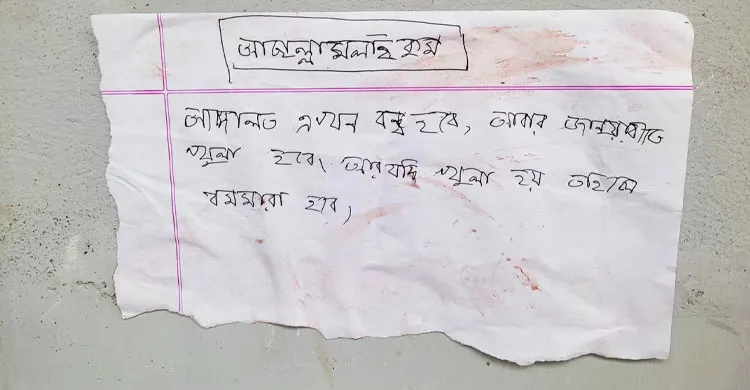 আচ্ছাল্লামলাইকুম
আদালত এখন বন্ধ হবে, আবার জানুয়ারীতে
খুলা হবে। আর যদি খুলা হয় তাহিলে
বমমারা হবে,